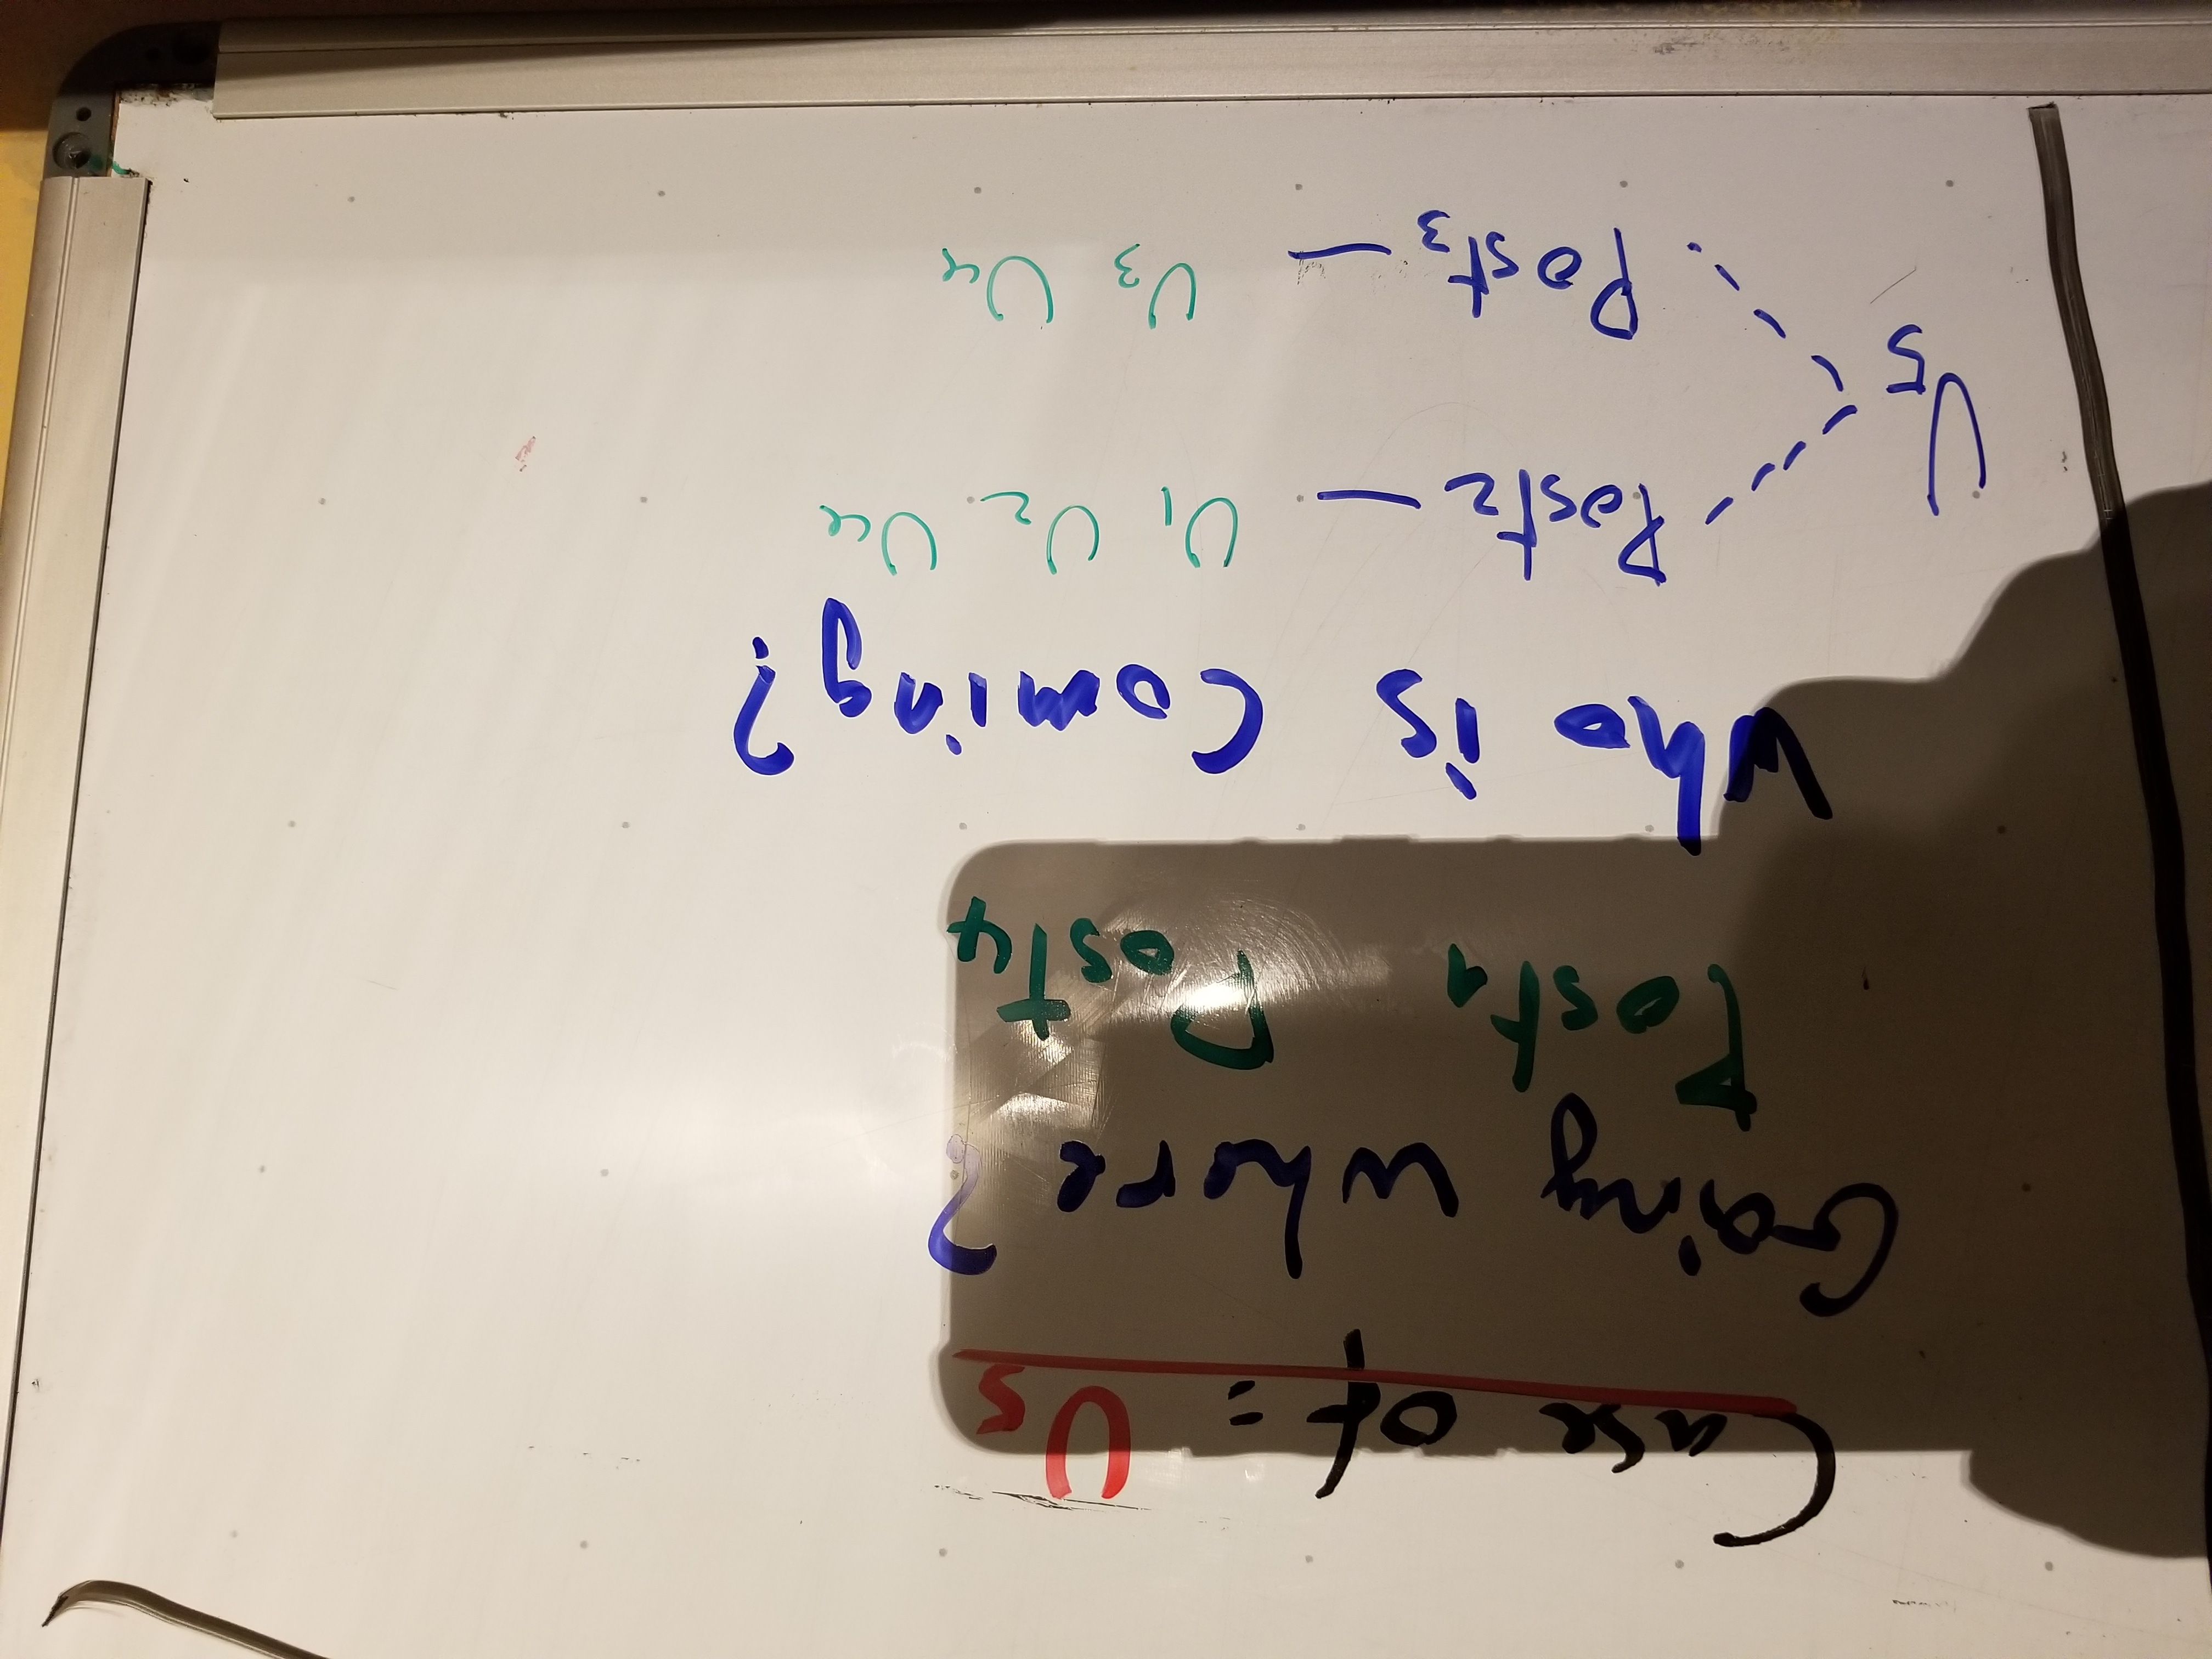 Case of: U5
Going where?
Post1 Post4
Who is Coming?
Post2 — U1 U2 U4
U5
Post3 — U3 U4